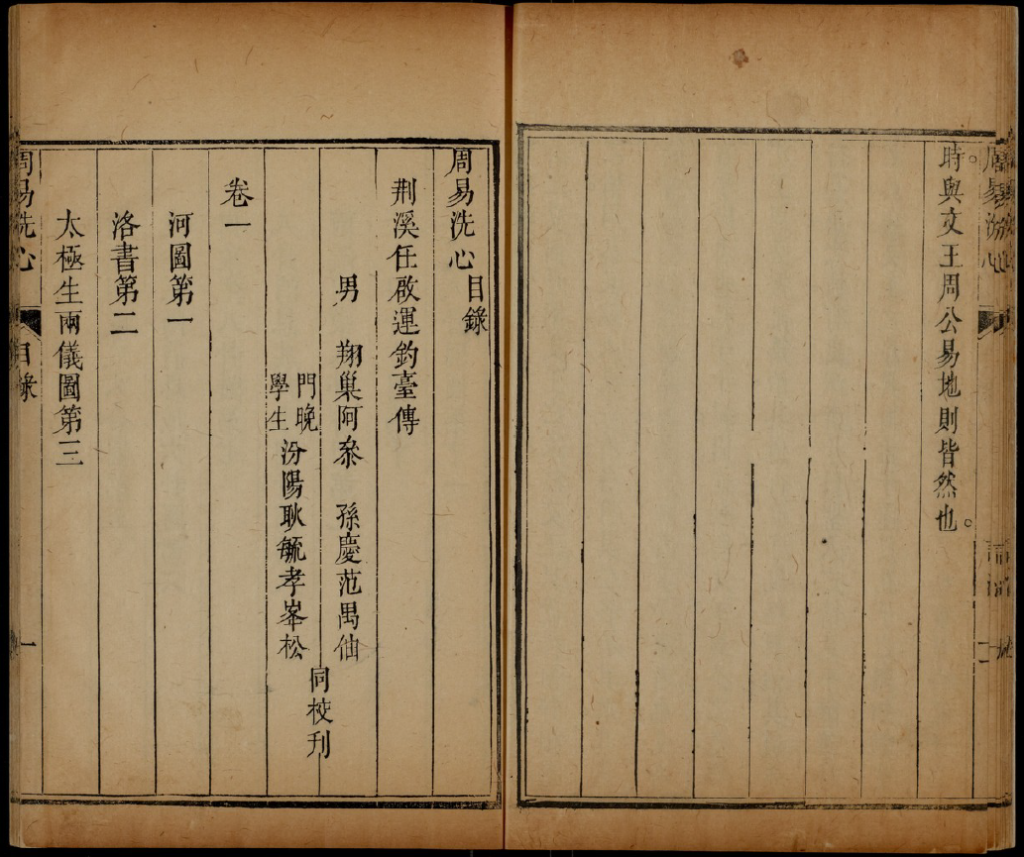 時與文王周公易地則皆然也。
周易洗心目錄
荆溪任啟運釣臺傳
男 翔巢阿叅 孫慶范禺仙
門晚
學生
汾陽耿毓孝峯松
同校刋
卷一
河圖第一
洛書第二
太極生兩儀圖第三
周易洗心 目錄 一